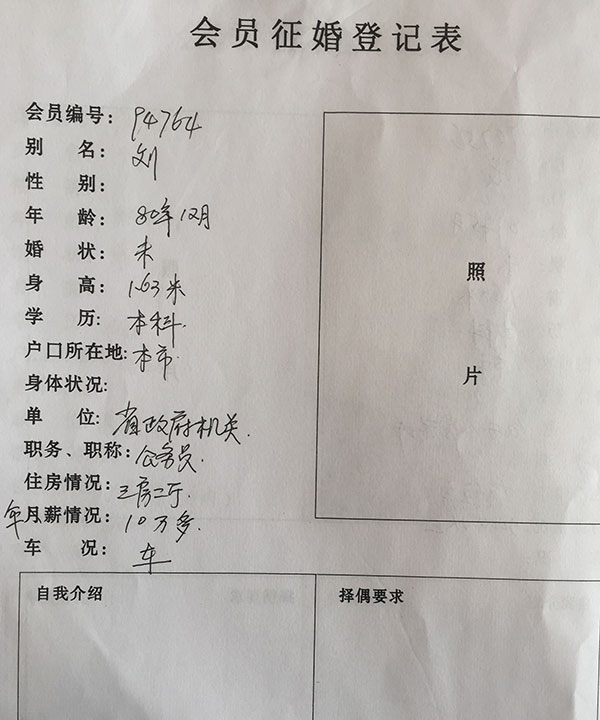 会员征婚登记表
会员编号: P4764
别 名: 刘
性 别:
年 龄: 80年12月
婚 状: 未
身 高: 1.63米
学 历: 本科.
户口所在地: 本市.
身体状况:
单 位: 省政府机关.
职务、职称: 公务员.
住房情况: 三房二厅.
年月薪情况: 10万多.
车 况: 车
照
片
自我介绍
择偶要求